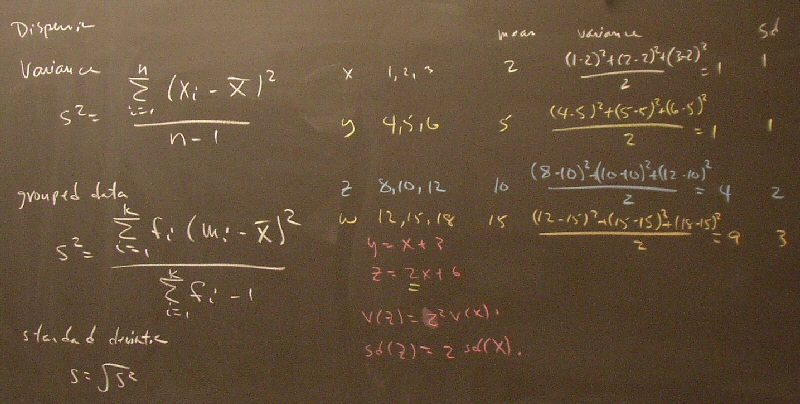 Dispersion
mean variance sd
Variance
s² = \frac{\sum_{i=1}^{n} (x_i - \bar{x})^2}{n-1}
x 1, 2, 3 2 \frac{(1-2)^2+(2-2)^2+(3-2)^2}{2} = 1 1
y 4, 5, 6 5 \frac{(4-5)^2+(5-5)^2+(6-5)^2}{2} = 1 1
z 8, 10, 12 10 \frac{(8-10)^2+(10-10)^2+(12-10)^2}{2} = 4 2
w 12, 15, 18 15 \frac{(12-15)^2+(15-15)^2+(18-15)^2}{2} = 9 3
grouped data
s² = \frac{\sum_{i=1}^{k} f_i (m_i - \bar{x})^2}{\sum_{i=1}^{k} f_i - 1}
y = x + 3
z = 2x + 6
V(z) = 2² V(x).
sd(z) = 2 sd(x).
standard deviation
s = √s²